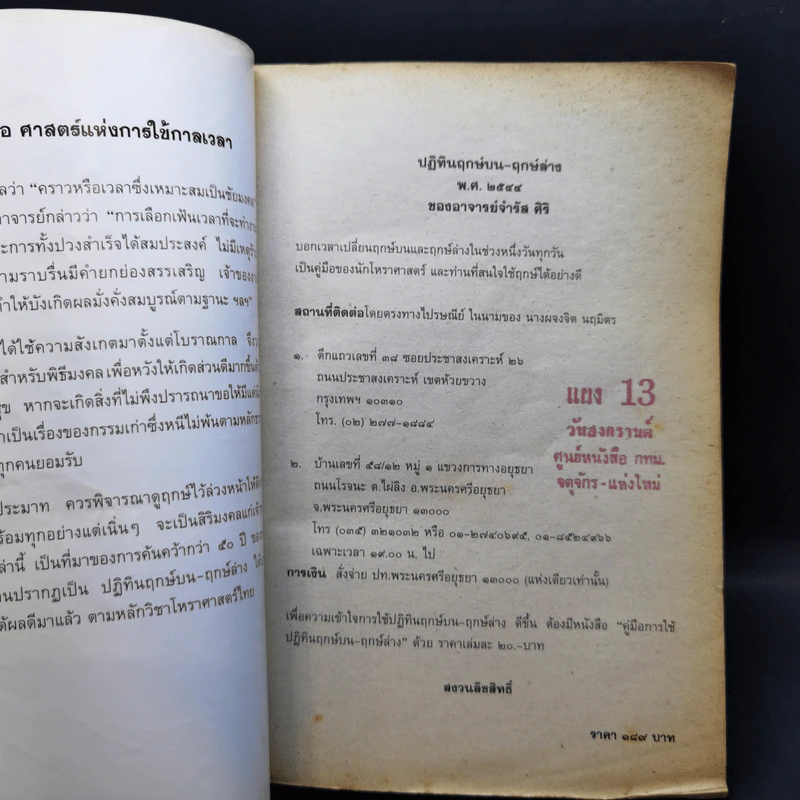 อ ศาสตร์แห่งการใช้กาลเวลา
ลว่า “คราวหรือเวลาซึ่งเหมาะสมเป็นชัยมงคล
าจารย์กล่าวว่า “การเลือกเฟ้นเวลาที่จะทำงาน
ะการทั้งปวงสำเร็จได้สมประสงค์ ไม่มีเหตุ
ามราบรื่นมีคำยกย่องสรรเสริญ เจ้าของ
ทำให้บังเกิดผลมั่งคั่งสมบูรณ์ตามฐานะ ฯลฯ”
ได้ใช้ความสังเกตมาตั้งแต่โบราณกาล จึง
สำหรับพิธีมงคล เพื่อหวังให้เกิดส่วนดีมากขึ้น
ุข หากจะเกิดสิ่งที่ไม่พึงปรารถนาขอให้มีแต่
าเป็นเรื่องของกรรมเก่าซึ่งหนีไม่พ้นตามหลัก
ทุกคนยอมรับ
ประมาท ควรพิจารณาดูฤกษ์ไว้ล่วงหน้าให้
ร้อมทุกอย่างแต่เนิ่นๆ จะเป็นสิริมงคลแก่
ล่านี้ เป็นที่มาของการค้นคว้ากว่า ๕๐ ปี ของ
นปรากฏเป็น ปฏิทินฤกษ์บน-ฤกษ์ล่าง ได้
ด้ผลดีมาแล้ว ตามหลักวิชาโหราศาสตร์ไทย
ปฏิทินฤกษ์บน-ฤกษ์ล่าง
พ.ศ. ๒๕๔๔
ของอาจารย์จำรัส ศิริ
บอกเวลาเปลี่ยนฤกษ์บนและฤกษ์ล่างในช่วงหนึ่งวันทุกวัน
เป็นคู่มือของนักโหราศาสตร์ และท่านที่สนใจใช้ฤกษ์ได้อย่างดี
สถานที่ติดต่อโดยตรงทางไปรษณีย์ ในนามของ นางผจงจิต นฤมิตร
๑. ตึกแถวเลขที่ ๓๘ ซอยประชาสงเคราะห์ ๒๖
ถนนประชาสงเคราะห์ เขตห้วยขวาง
กรุงเทพฯ ๑๐๓๑๐
โทร. (๐๒) ๒๗๗-๑๘๘๔
แผง 13
วันสงครานต์
ศูนย์หนังสือ กทม.
จตุจักร-แห่งใหม่
๒. บ้านเลขที่ ๕๘/๑๒ หมู่ ๑ แขวงการทางอยุธยา
ถนนโรจนะ ต.ไผ่ลิง อ.พระนครศรีอยุธยา
จ.พระนครศรีอยุธยา ๑๓๐๐๐
โทร (๐๓๕) ๓๒๑๐๓๒ หรือ ๐๑-๒๗๔๐๖๙๕, ๐๑-๘๕๒๔๙๖๖
เฉพาะเวลา ๑๙.๐๐ น. ไป
การเงิน สั่งจ่าย ปท.พระนครศรีอยุธยา ๑๓๐๐๐ (แห่งเดียวเท่านั้น)
เพื่อความเข้าใจการใช้ปฏิทินฤกษ์บน-ฤกษ์ล่าง ดีขึ้น ต้องมีหนังสือ “คู่มือการใช้
ปฏิทินฤกษ์บน-ฤกษ์ล่าง” ด้วย ราคาเล่มละ ๒๐.-บาท
สงวนลิขสิทธิ์
ราคา ๑๘๙ บาท